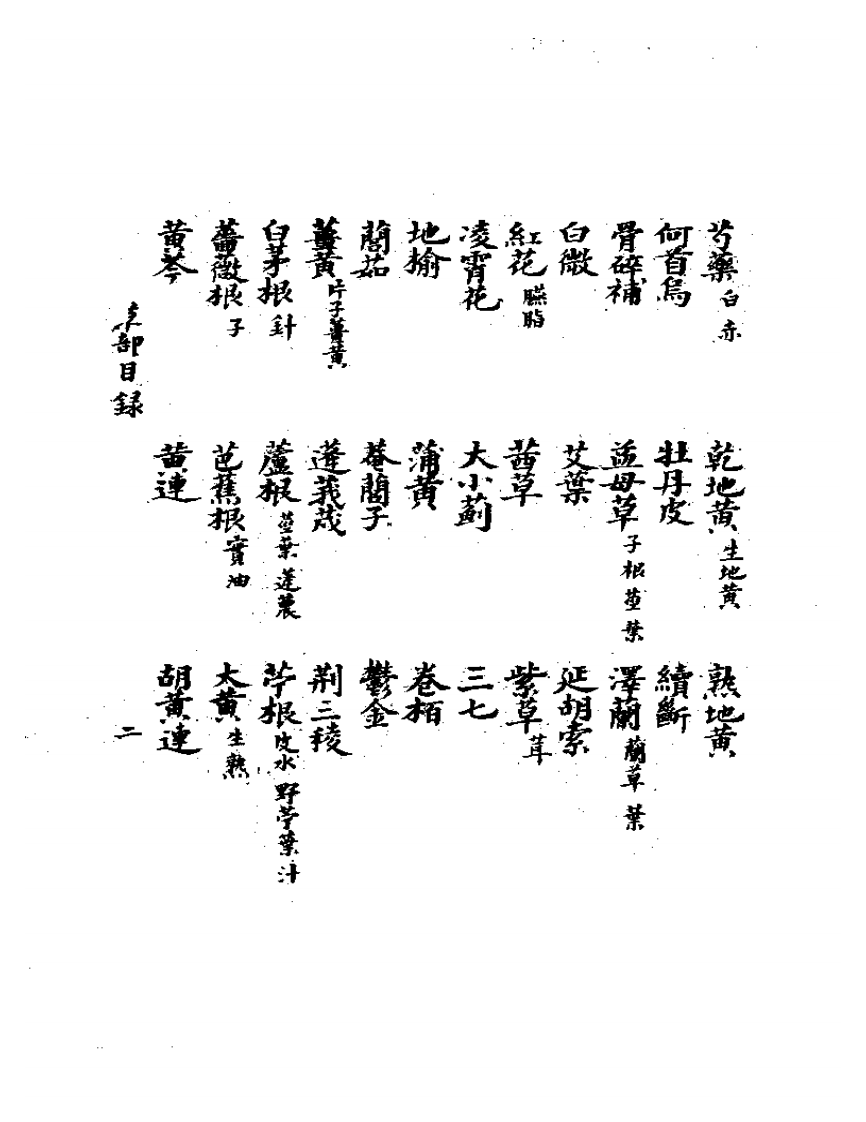 芍藥 白 赤 乾地黃 生地黃 熟地黃
何首烏 牡丹皮 續斷
骨碎補 益母草 子 根 莖 葉 澤蘭 蘭草 葉
白微 艾葉 延胡索
紅花 臙脂 茜草 紫草 茸
凌霄花 大小薊 三七
地榆 蒲黃 卷栢
蕳茹 菴蕳子 鬱金
薑黃 片子薑黃 蓬莪茂 荊三稜
白茅根 針 蘆根 莖葉 蓬蕽 苧根 皮水 野苧葉 汁
薔薇根 子 芭蕉根 實 油 大黃 生熟
黃芩 黃連 胡黃連
草部目録 二